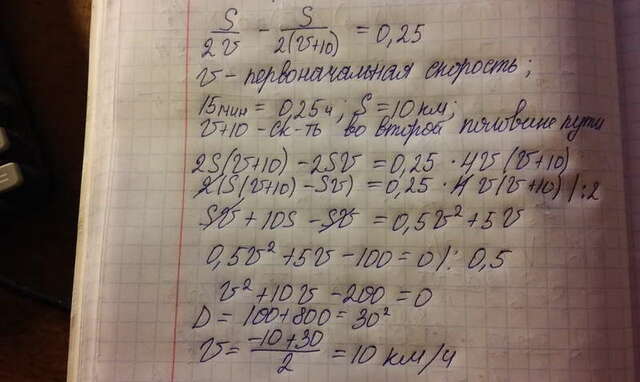 S/2v - S/2(v+10) = 0,25
v - первоначальная скорость;
15мин = 0,25ч; S = 10 км;
v+10 - ск-ть во второй половине пути
2S(v+10) - 2Sv = 0,25 · 4v(v+10)
2(S(v+10) - Sv) = 0,25 · 4v(v+10) /:2
Sv + 10S - Sv = 0,5v² + 5v
0,5v² + 5v - 100 = 0 /: 0,5
v² + 10v - 200 = 0
D = 100 + 800 = 30²
v = -10+30/2 = 10 км/ч